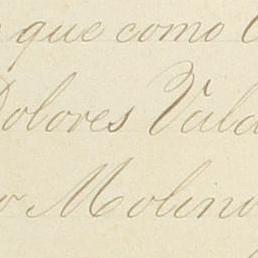 que como
Dolores Vald
Molino